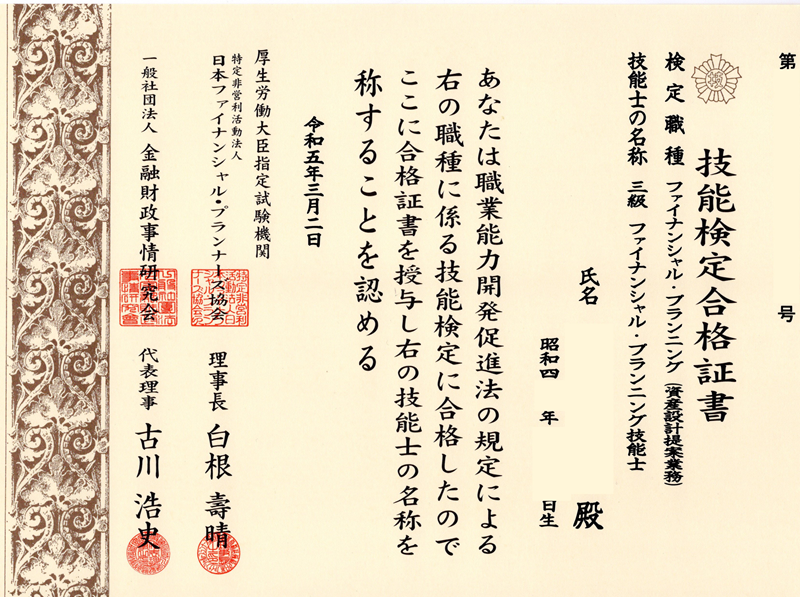 第 号
技能検定合格証書
検定職種 ファイナンシャル・プランニング (資産設計提案業務)
技能士の名称 三級 ファイナンシャル・プランニング技能士
氏名 殿
昭和四 年 日生
あなたは職業能力開発促進法の規定による
右の職種に係る技能検定に合格したので
ここに合格証書を授与し右の技能士の名称を
称することを認める
令和五年三月二日
厚生労働大臣指定試験機関
特定非営利活動法人
日本ファイナンシャル・プランナーズ協会 理事長 白根 壽晴
一般社団法人 金融財政事情研究会 代表理事 古川 浩史